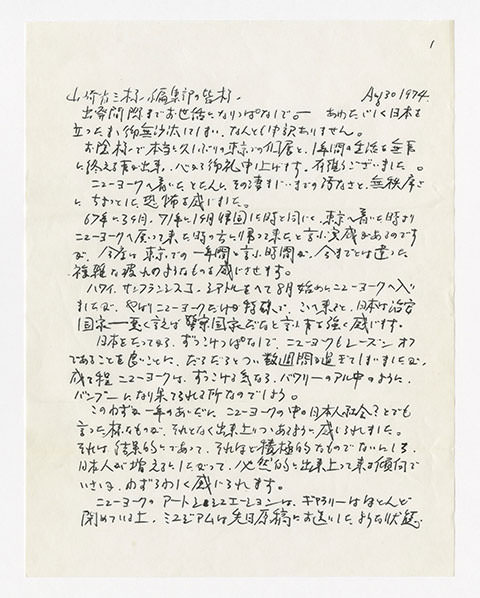 1
山崎省三様、編集部の皆様、 Aug 30 1974.
出発間際までお世話になりっぱなしで、― あわただしく日本を
立ったまま御無沙汰してしまい、なんとも申訳ありません。
お陰様で本当に久しぶりの東京での個展と、1年間の生活を無事
に終える事が出来、心から御礼申上げます。有難うございました。
ニューヨークへ着いたとたんに、その凄まじいまでの汚なさと、無秩序さ
に、ちょっとした恐怖を感じました。
67年に3ヶ月、71年に1ヶ月帰国した時と同じく、東京へ着いた時より
ニューヨークへ戻って来た時の方に帰って来たと言ふ実感があるのです
が、今度は東京での一年間と言ふ時間が、今までとは違った
複雑な疲れのようなものを感じさせます。
ハワイ、サンフランシスコ、シアトルをへて8月始めにニューヨークへ入り
ましたが、やはりニューヨークだけは特殊で、こゝへ来ると、日本は治安
国家――悪く言えば警察国家だなと言ふ事を強く感じます。
日本をたってから、ずっこけっぱなしで、ニューヨークもシーズン オフ
であることを良いことに、だらだらとつい数週間を過ぎてしまいましたが、
成る程 ニューヨークは、ずっこける気なら、バワリーのアル中のように、
バンプーになり果てられる所なのでしょう。
このわずか一年のあいだに、ニューヨークの中の日本人社会?とでも
言った様なものが、それとなく出来上りつつあるように感じられました。
それは結果的にであって、それほど積極的なものでないにしろ、
日本人が増えるにしたがって、必然的に出来上って来る傾向で
いささか、わずらわしく感じられます。
ニューヨークのアートシチュエーションは、ギャラリーはほとんど
閉めている上、ミュジアムは先日原稿にお送いしたような状態